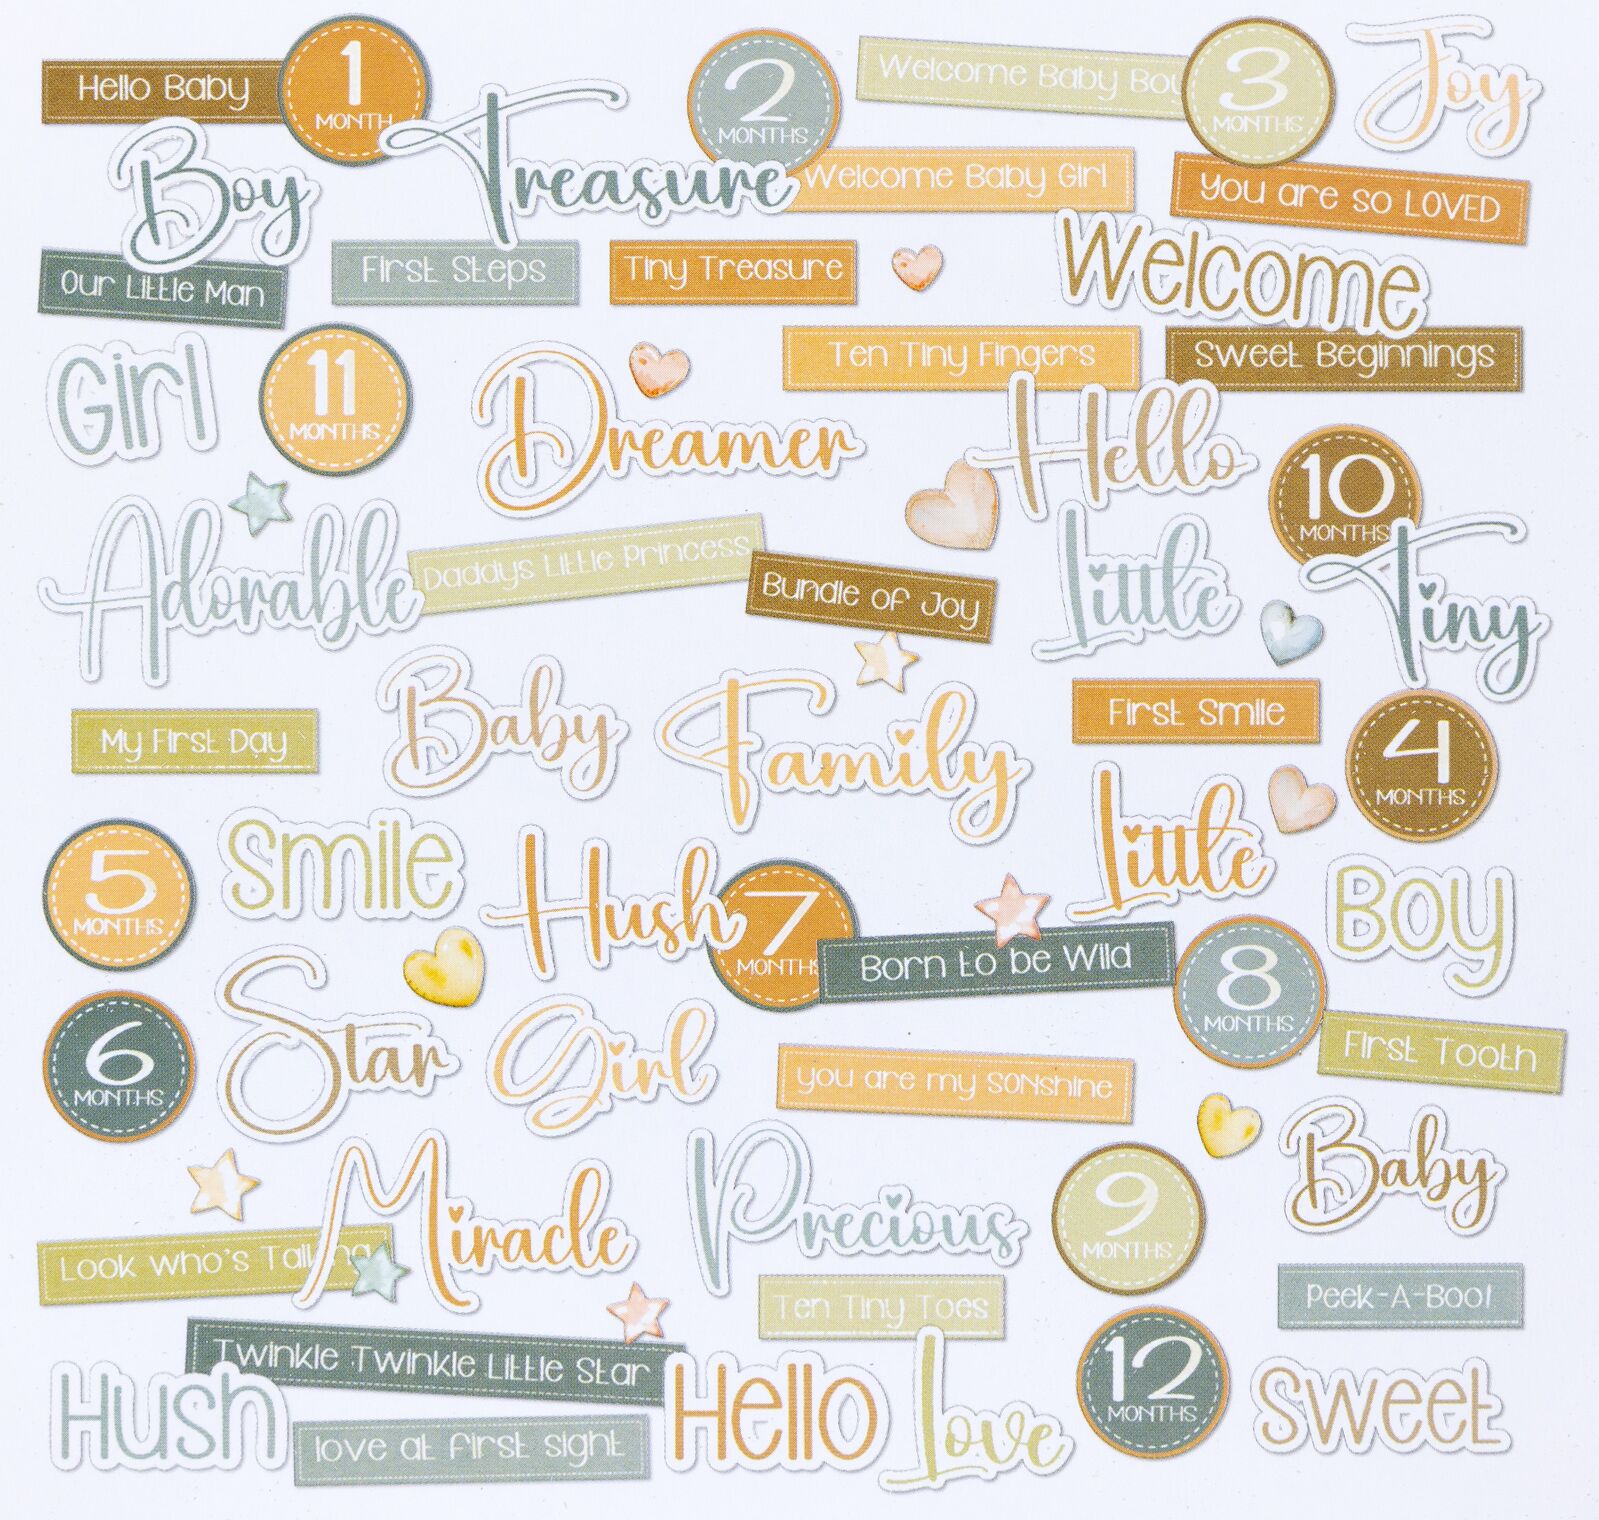 Hello Baby
1
MONTH
2
MONTHS
Welcome Baby Boy
3
MONTHS
Joy
Boy
Treasure
Welcome Baby Girl
you are so LOVED
Our Little Man
First Steps
Tiny Treasure
Welcome
Girl
11
MONTHS
Dreamer
Ten Tiny Fingers
Sweet Beginnings
Hello
10
MONTHS
Adorable
Daddys Little Princess
Bundle of Joy
Little
Tiny
My First Day
Baby
Family
First Smile
4
MONTHS
5
MONTHS
Smile
Hush
7
MONTHS
Little
Boy
Born to be Wild
8
MONTHS
6
MONTHS
Star
Girl
you are my SONshine
First Tooth
Miracle
Precious
9
MONTHS
Baby
Look Who's Talking
Ten Tiny Toes
Peek-A-Boo!
Twinkle Twinkle Little Star
12
MONTHS
Hush
love at first sight
Hello
Love
Sweet